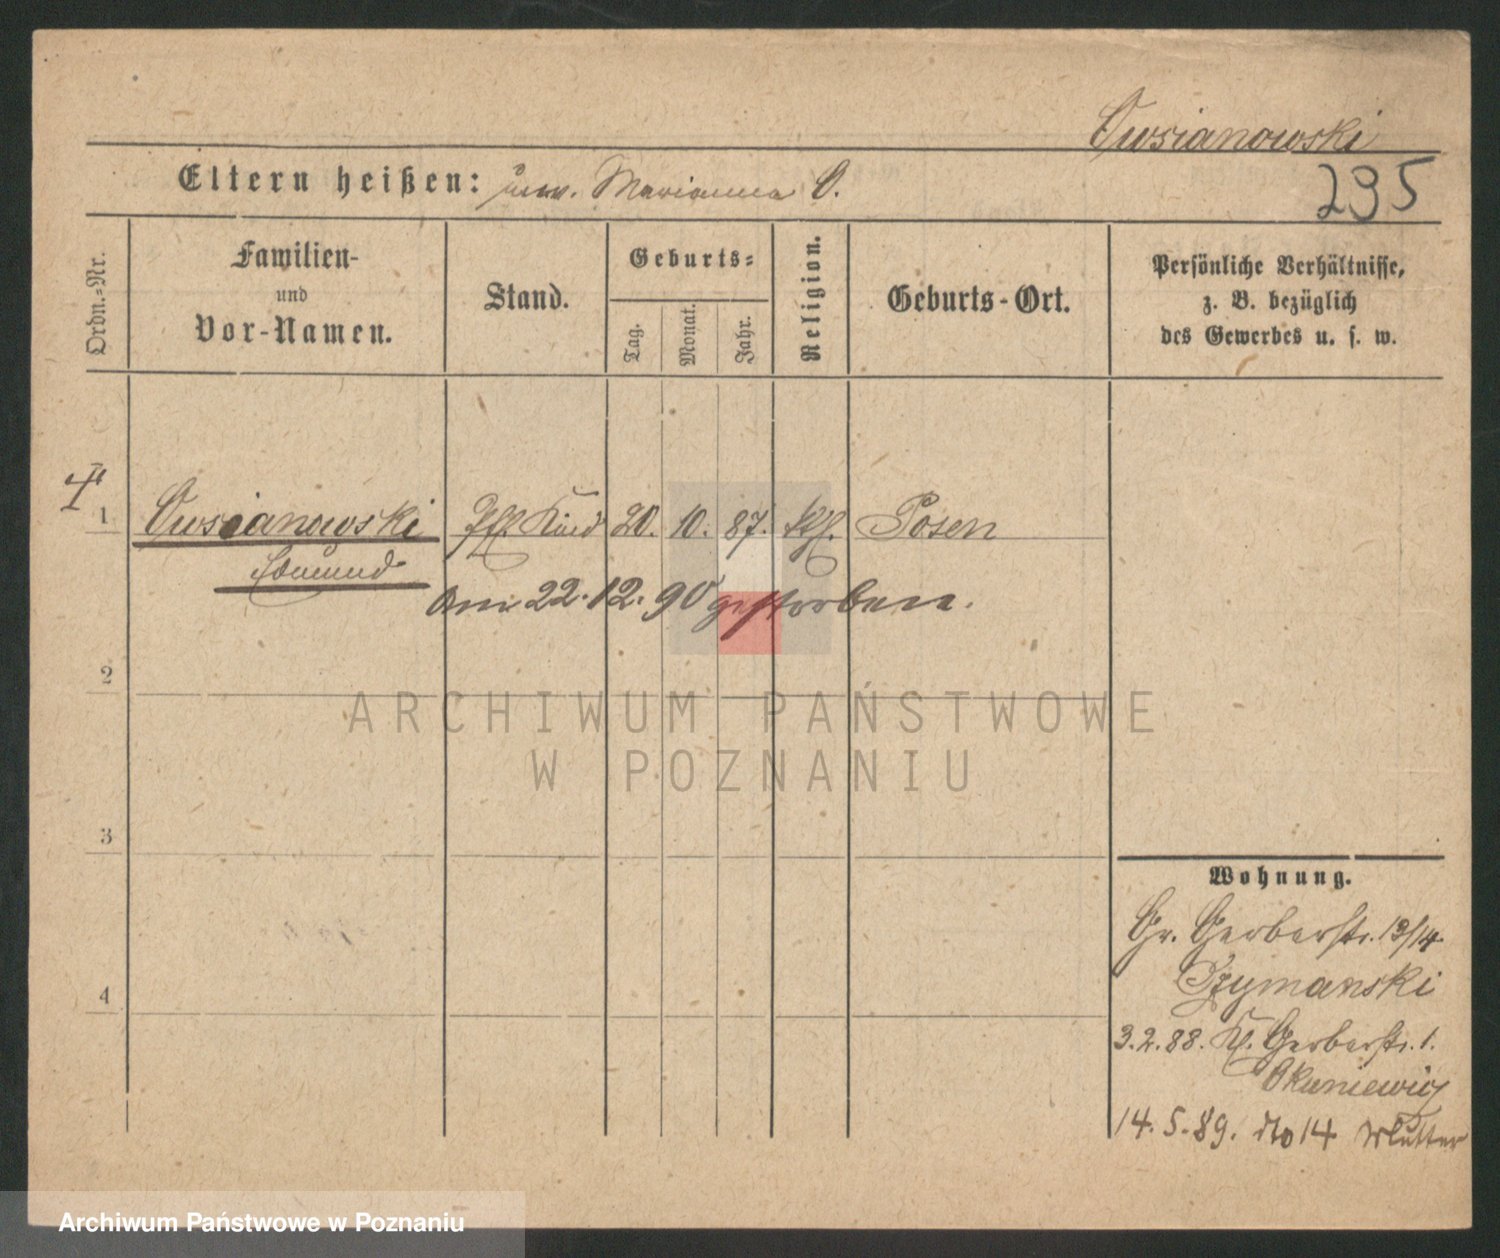 Owsianowski
Eltern heißen: unv. Marianna O.
295
Ordn.-Nr.
Familien-
und
Vor-Namen.
Stand.
Geburts-
Tag.
Monat.
Jahr.
Religion.
Geburts-Ort.
Persönliche Verhältnisse,
z. B. bezüglich
des Gewerbes u. s. w.
1 Owsianowski Pfl. Kind 20. 10. 87. kth. Posen
Edmund
am 22.12.90 gestorben.
2
3
4
ARCHIWUM PAŃSTWOWE
W POZNANIU
Wohnung.
Gr. Gerberstr. 13/14
Szymanski
3.2.88. Kl. Gerberstr. 1.
Okuniewicz
14.5.89. dto 14 Mutter
Archiwum Państwowe w Poznaniu